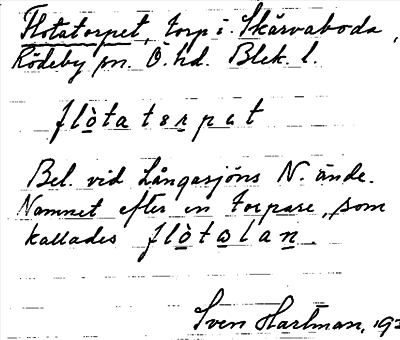 Flotatorpet, torp i Skärvaboda,
Rödeby sn. Ö. hd. Blek. l.
flòtatɘrpat
Bel. vid Långasjöns N. ände.
Namnet efter en torpare, som
kallades flòtalan.
Sven Hartman, 192